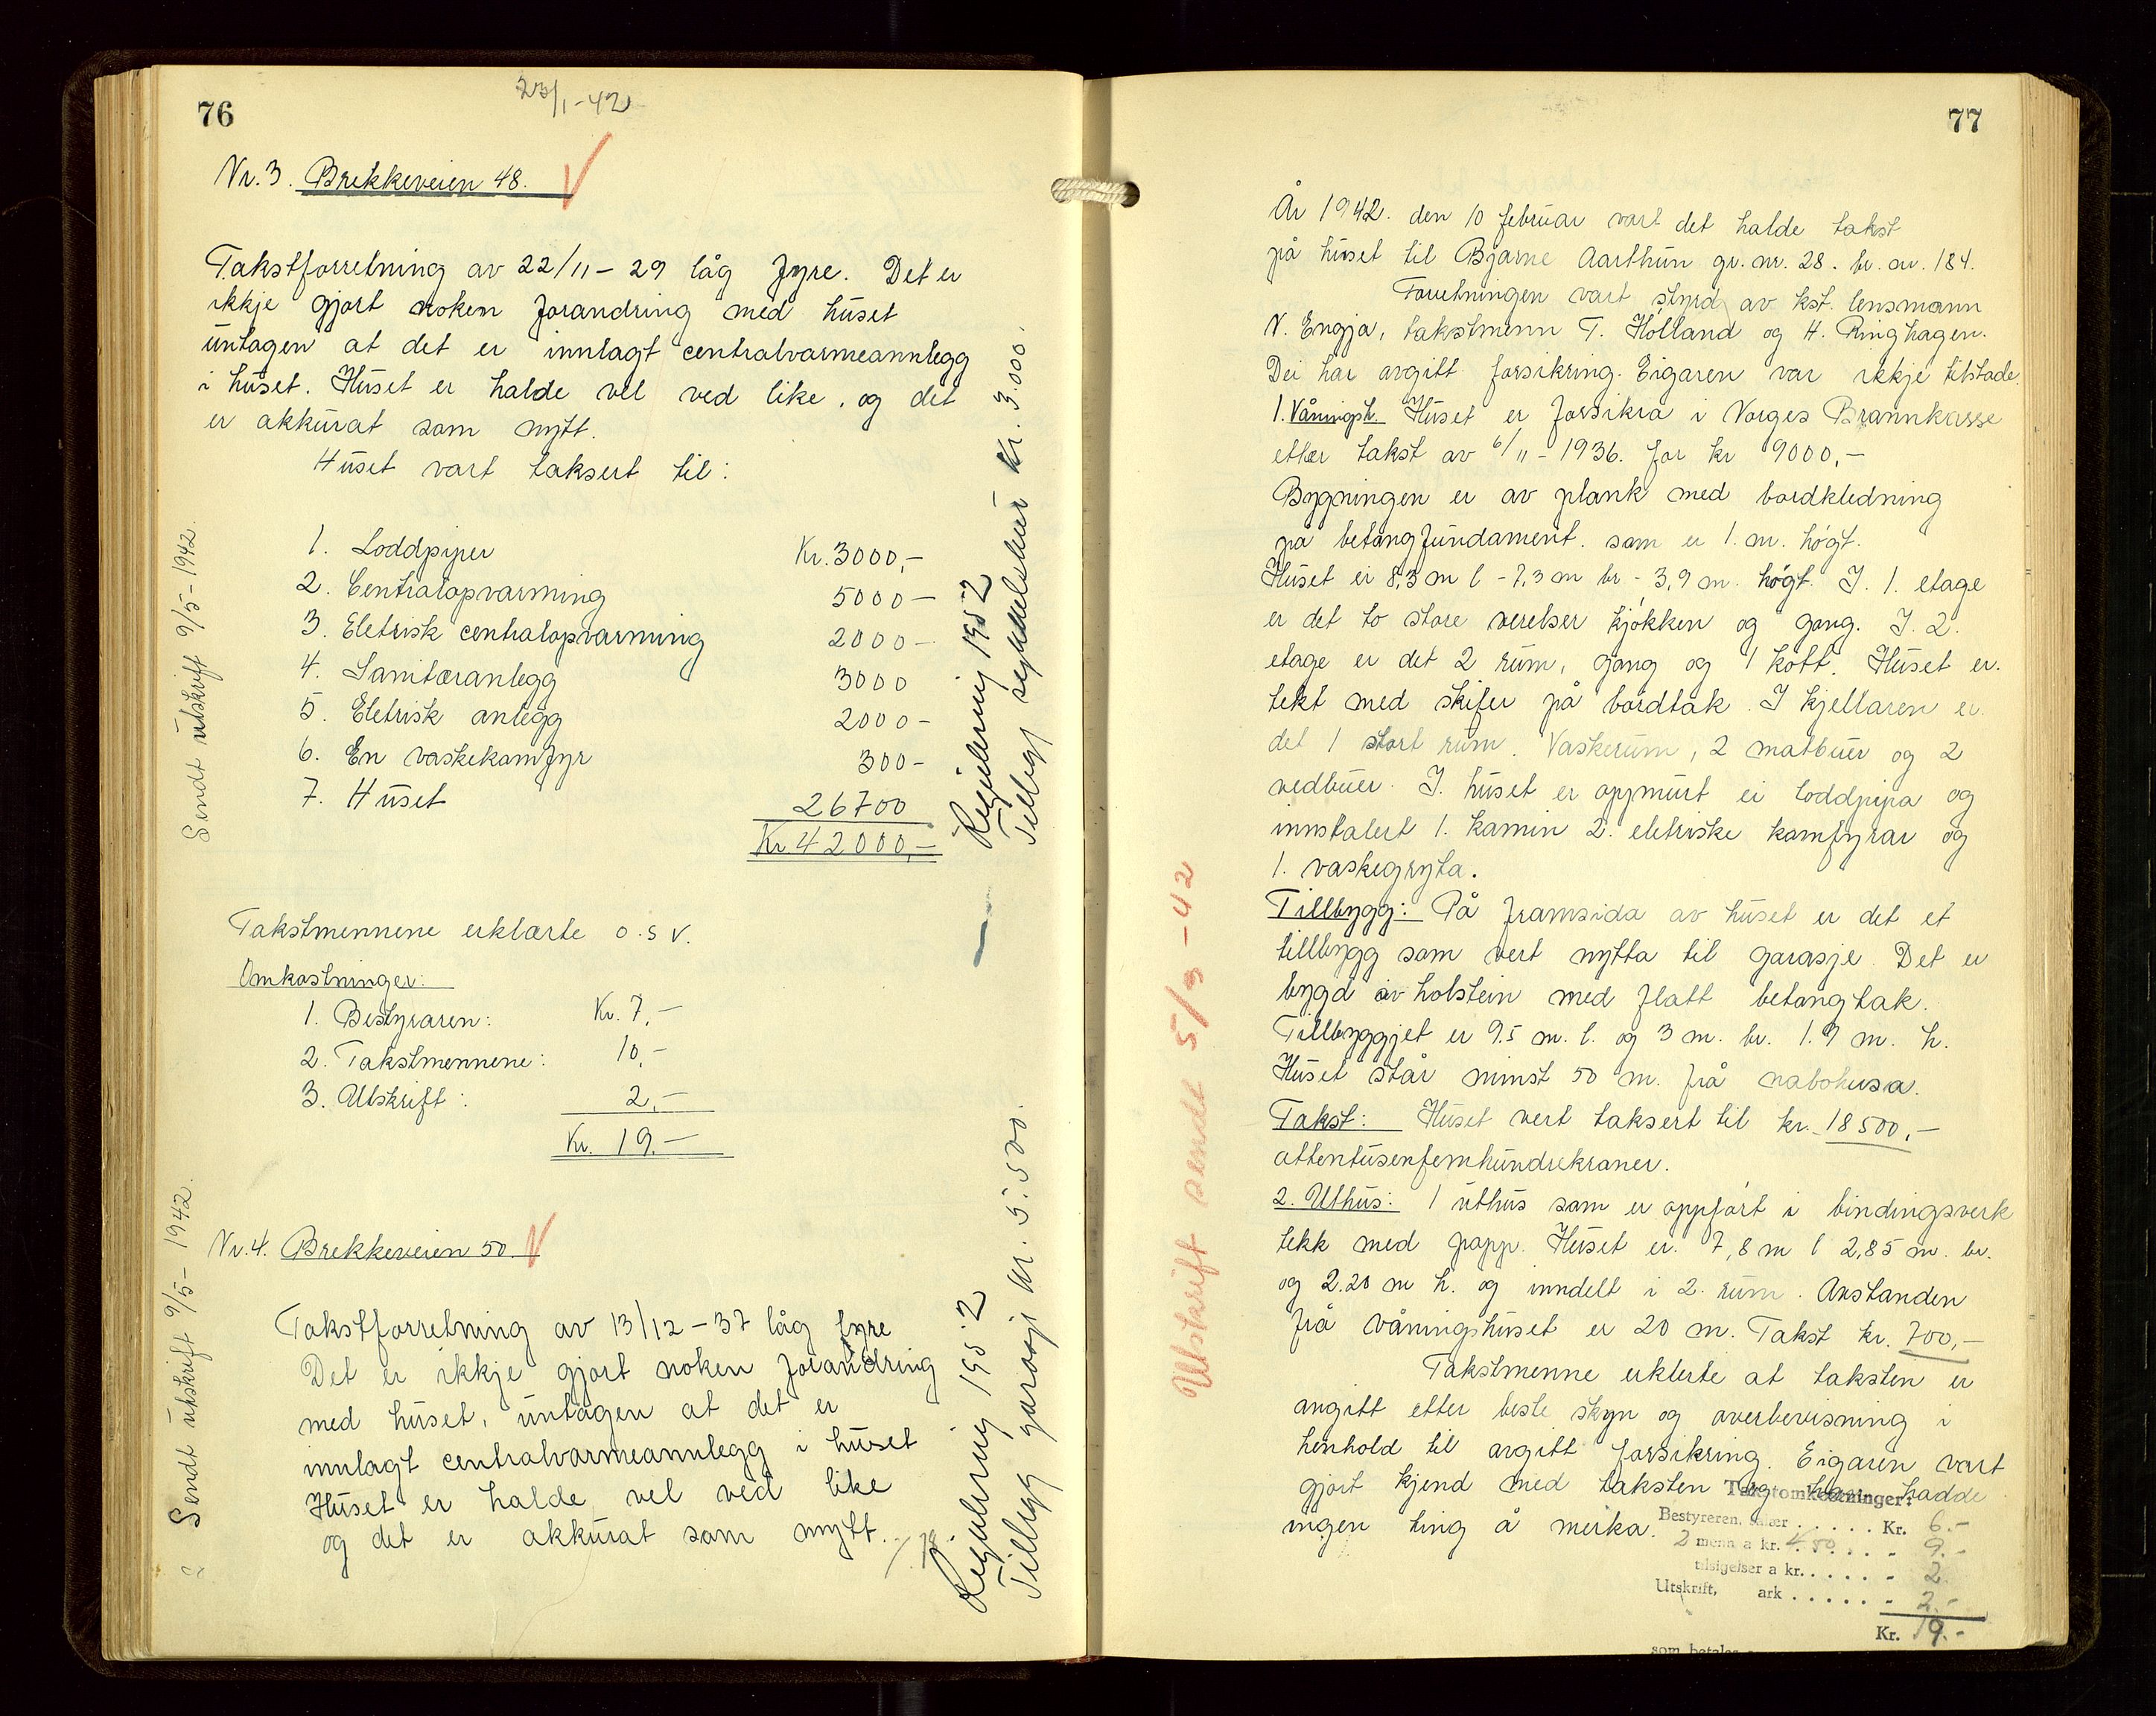 76
23/1-42
Nr. 3. Brekkeveien 48.
Takstforretning av 22/11-29 låg fyre. Det er
ikkje gjort noken forandring med huset
untagen at det er innlagt centralvarmeannlegg
i huset. Huset er halde vel ved like, og det
er akkurat som nytt.
Huset vart taksert til:
1. Loddpiper Kr. 3000,-
2. Centralopvarming 5000-
3. Eletrisk centralopvarming 2000-
4. Sanitæranlegg 3000
5. Eletrisk anlegg 2000-
6. En vaskekamfyr 300-
7. Huset 26700
Kr 42000,-
Takstmennene erklærte o.s v.
Omkostninger:
1. Bestyraren: Kr. 7,-
2. Takstmennene: 10,-
3. Utskrift: 2,-
Kr. 19.-
Nr. 4. Brekkeveien 50.
Takstforretning av 13/12-37 låg fyre
Det er ikkje gjort noken forandring
med huset, untagen at det er
innlagt centralvarmeannlegg i huset
Huset er halde vel ved like
og det er akkurat som nytt.
Sendt utskrift 9/5-1942.
Sendt utskrift 9/5-1942.
Regulering 1952
Tillegg kr. 3.000.
Regulering 1952
Tillegg garasje kr. 5.500.
77
År 1942. den 10 februar vart det halde takst
på huset til Bjarne Aarthun gr. nr. 28. br. nr. 184.
Forretningen vart styrd av kst. lensmann
N. Engja, takstmenn T. Hølland og H. Ringhagen.
Dei har avgitt forsikring. Eigaren var ikkje tilstade.
1. Våningsh. Huset er forsikra i Norges Brannkasse
etter takst av 6/11-1936. for kr 9000,-
Bygningen er av plank med bordkledning
på betongfundament. som er 1. m. høgt.
Huset er 8,3 m l - 7,3 m br - 3,9 m. høgt. I. 1. etage
er det to store verelser kjøkken og gang. I. 2.
etage er det 2 rum, gang og 1 kott. Huset er.
tekt med skifer på bordtak. I kjellaren er.
det 1 stort rum. Vaskerum, 2 matbuer og 2
vedbuer. I. huset er oppmurt ei loddpipa og
innstalert 1. kamin 2. eletriske kamfyrar og
1. vaskegryta.
Tillbygg: På framsida av huset er det et
tillbygg som vert nytta til garasje. Det er
bygd av holstein med flatt betongtak.
Tillbyggjet er 9.5 m. l. og 3 m. br. 1.9 m. h.
Huset står minst 50 m. frå nabohusa.
Takst: Huset vert taksert til kr. 18500,-
attentusenfemhundrekroner.
2. Uthus: 1 uthus som er oppført i bindingsverk
tekk med papp. Huset er. 7,8 m l 2,85 m. br.
og 2.20 m h. og inndelt i 2. rum. Avstanden
frå våningshuset er 20 m. Takst kr. 700,-
Takstmenne erklerte at taksten er
avgitt etter beste skyn og overbevisning i
henhold til avgitt forsikring. Eigaren vart
gjort kjend med taksten og han hadde
ingen ting å merka.
Takstomkostninger:
Bestyreren, salær ..... Kr. 6.-
2 menn a kr. 4.50 .... - 9.-
tilsigelser a kr. ..... - 2.
Utskrift, ark ...... - 2.-
Kr. 19.-
som betales
Utskrift sendt 5/3-42